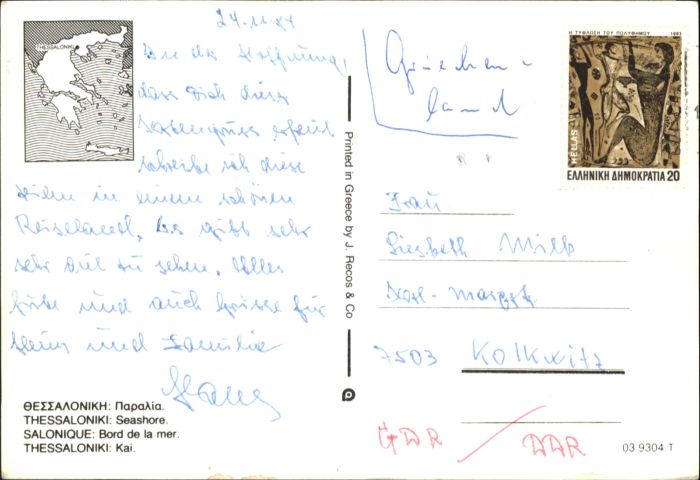 24.11.84
THESSALONIKI
In der Hoffnung,
dass Dich dieser
erfreut
schreibe ich diese
in einem schönen
Reiseland. Es gibt sehr
sehr viel zu sehen. Alles
Gute und auch Grüsse für
Heinz und Familie
Hans
ΘΕΣΣΑΛΟΝΙΚΗ: Παραλία.
THESSALONIKI: Seashore.
SALONIQUE: Bord de la mer.
THESSALONIKI: Kai.
Printed in Greece by J. Recos & Co
Griechen-
land
Η ΤΥΦΛΩΣΗ ΤΟΥ ΠΟΛΥΦΗΜΟΥ 1983
HELLAS
ΕΛΛΗΝΙΚΗ ΔΗΜΟΚΡΑΤΙΑ 20
Frau
Liesbeth
Karl-
7503 Kolkwitz
GDR / DDR
03 9304 T